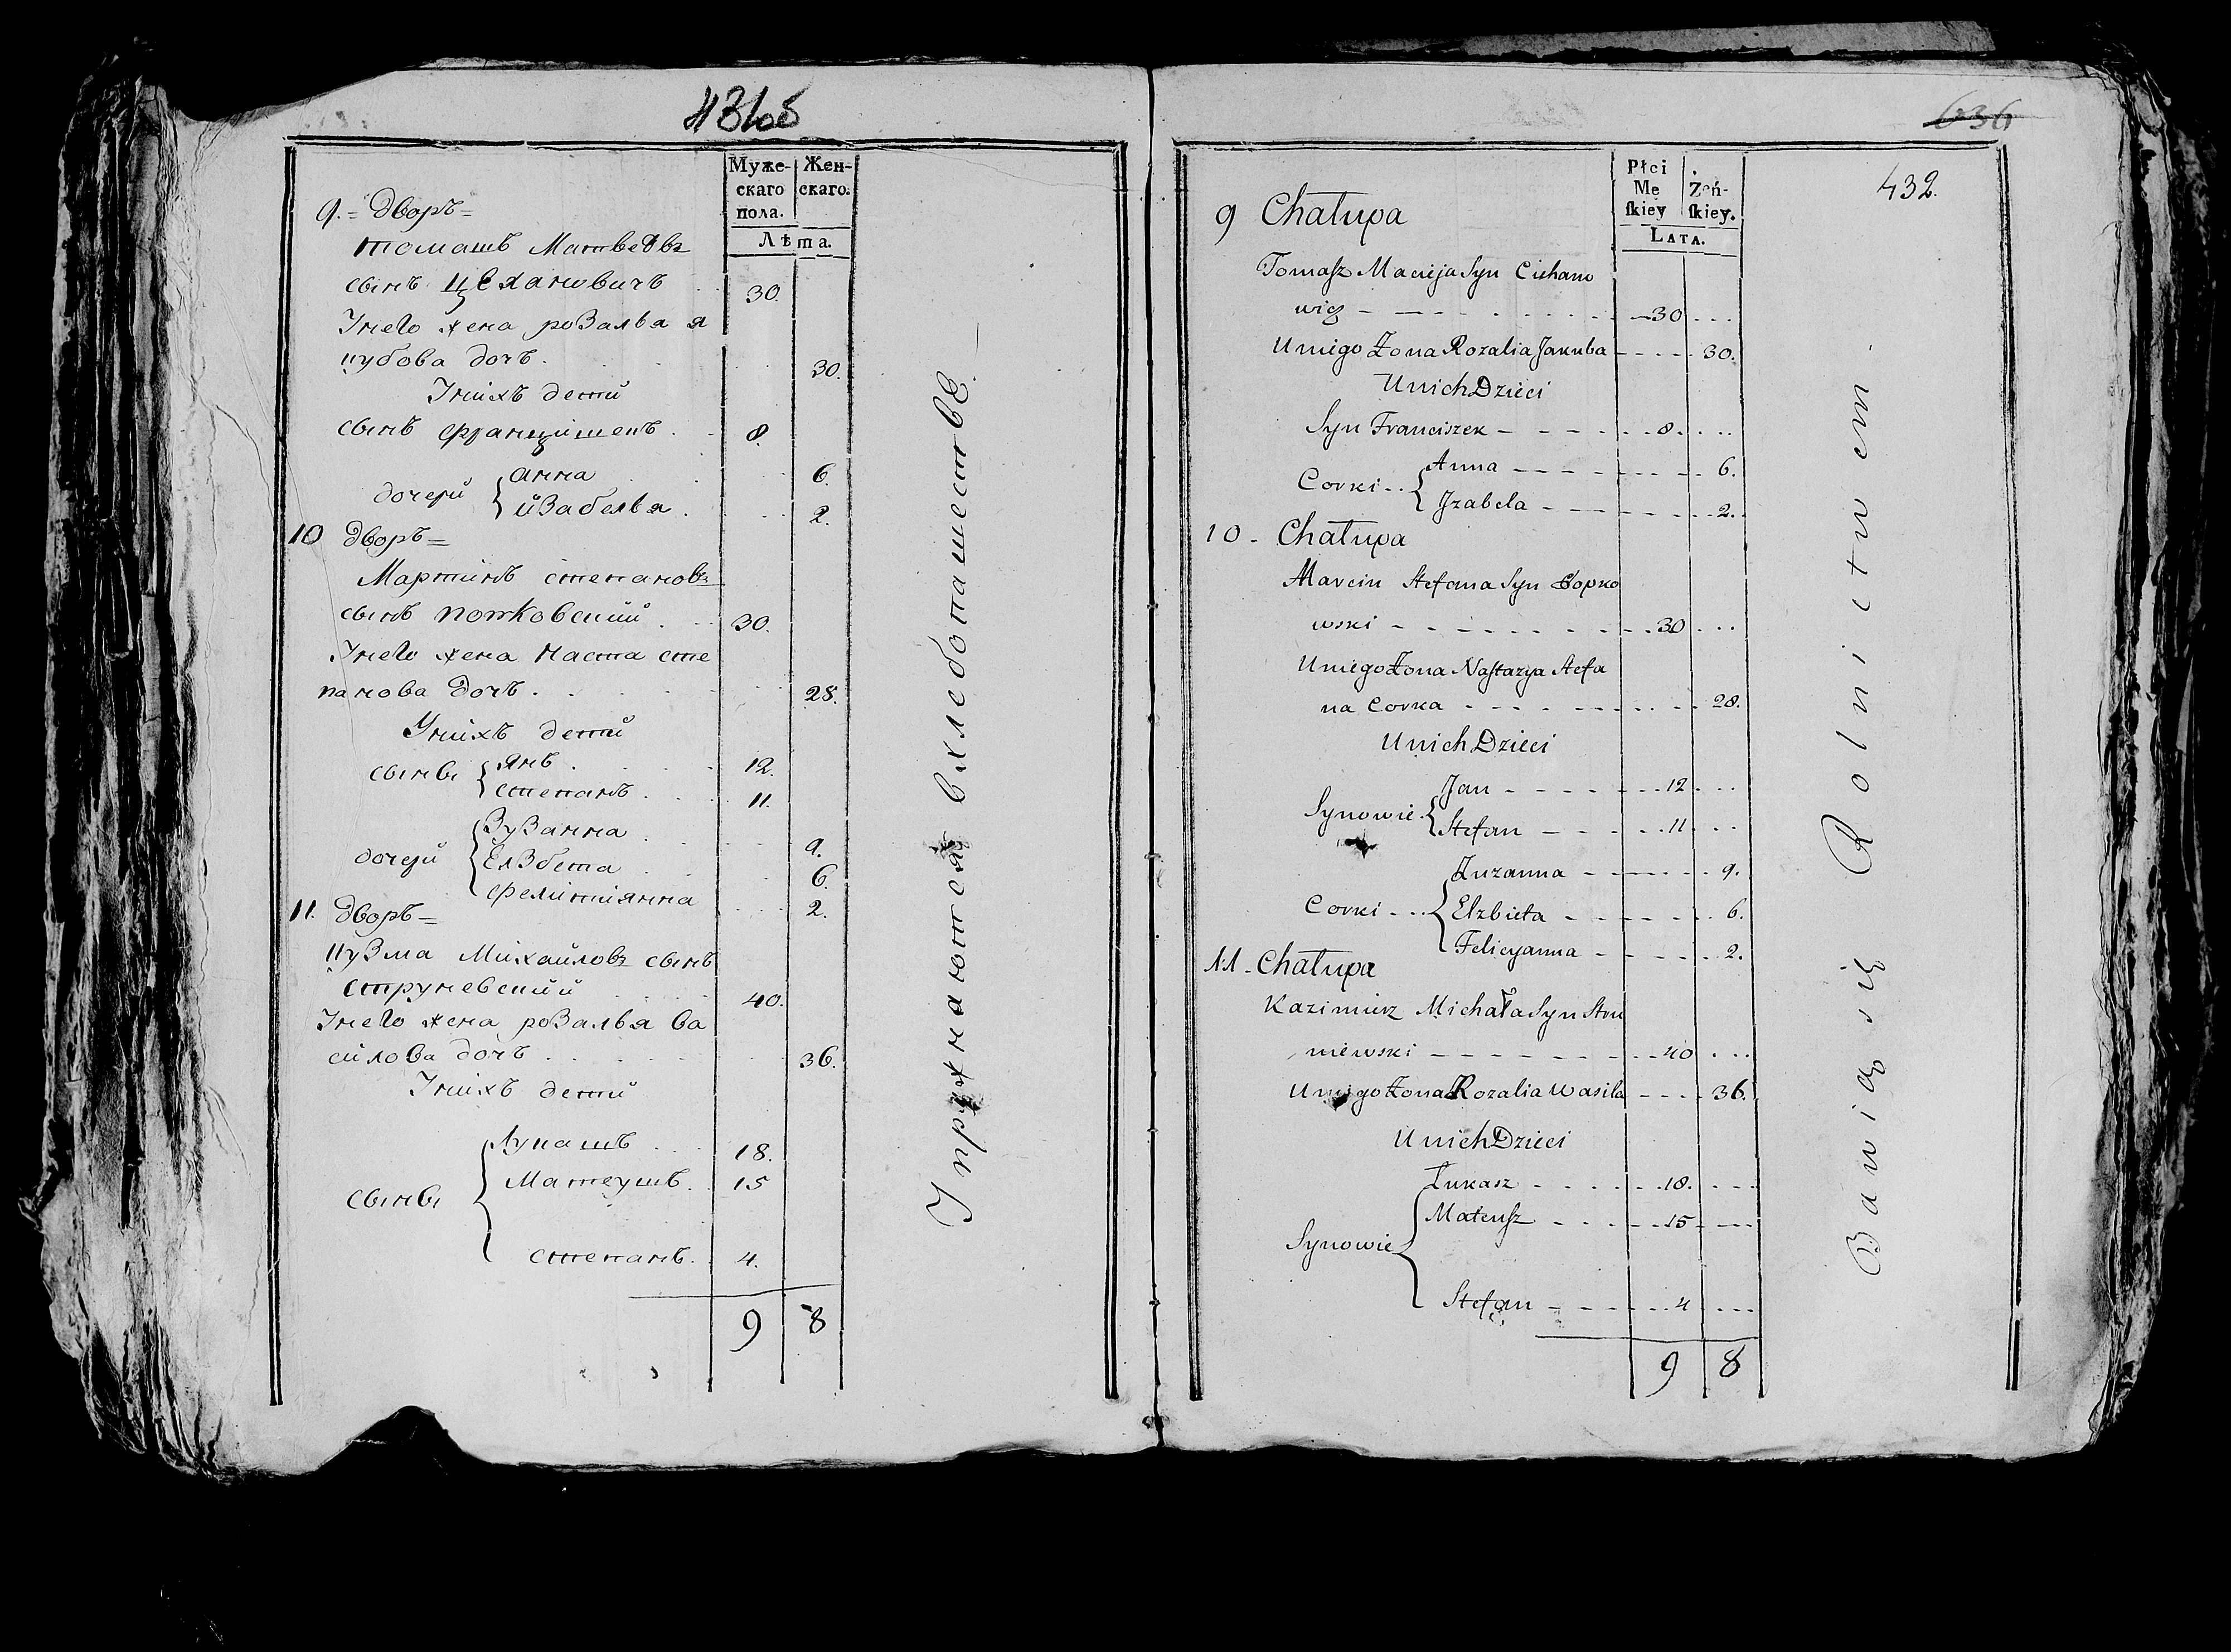 431об
Муже-
скаго
пола.
Жен-
скаго.
Лѣта.
9. = Дворъ =
Томашъ Матвеевъ
сынъ Цехановичъ . . 30.
Унего жена розалья я
кубова дочь . . . 30.
Унихъ дети
сынъ францишекъ . . 8.
дочери { Анна . . . 6.
изабелья . . . 2.
10 Дворъ =
Мартинъ степановъ
сынъ попковский . . 30.
Унего жена Наста сте
панова дочь . . . 28.
Унихъ дети
сыны { янъ . . . 12.
степанъ . . . 11.
дочери { Зузанна . . . 9.
Елзбета . . . 6.
фелициянна . . . 2.
11. Дворъ =
кузма Михайловъ сынъ
струневский . . . 40.
Унего жена розалья ва
силова дочь . . . 36.
Унихъ дети
сыны { Лукашъ . . . 18.
Матеушъ . 15
степанъ . 4.
9 8
Упражнаются вхлебопашестве
636
432.
Płci
Mę
ſkiey
Żeń-
ſkiey.
LATA.
9 Chałupa
Tomaſz Macieja Syn Ciehano
wicz - - - 30 . . .
Uniego Żona Rozalia Jakuba - - - 30.
Unich Dzieci
Syn Franciszek - - - 8 . . .
Corki . . { Anna - - - 6.
Jzabela - - - 2.
10 - Chałupa
Marcin Stefana Syn Popko
wski - - - 30 . . .
Uniego Żona Naſtazya Stefa
na Corka - - - 28.
Unich Dzieci
Synowie { Jan - - - 12 . . .
Stefan - - - 11 . . .
Corki . . . { Zuzanna - - - 9.
Elzbieta - - - 6.
Felicyanna - - - 2.
11 - Chałupa
Kazimierz Michała Syn Stru
niewski - - - 40 . . .
Uniego Żona Rozalia Wasila - - - 36.
Unich Dzieci
Synowie { Łukasz - - - 18. - - -
Mateuſz - - - 15 - - -
Stefan - - - 4 . . .
9 8
Bawią się Rolnictwem.